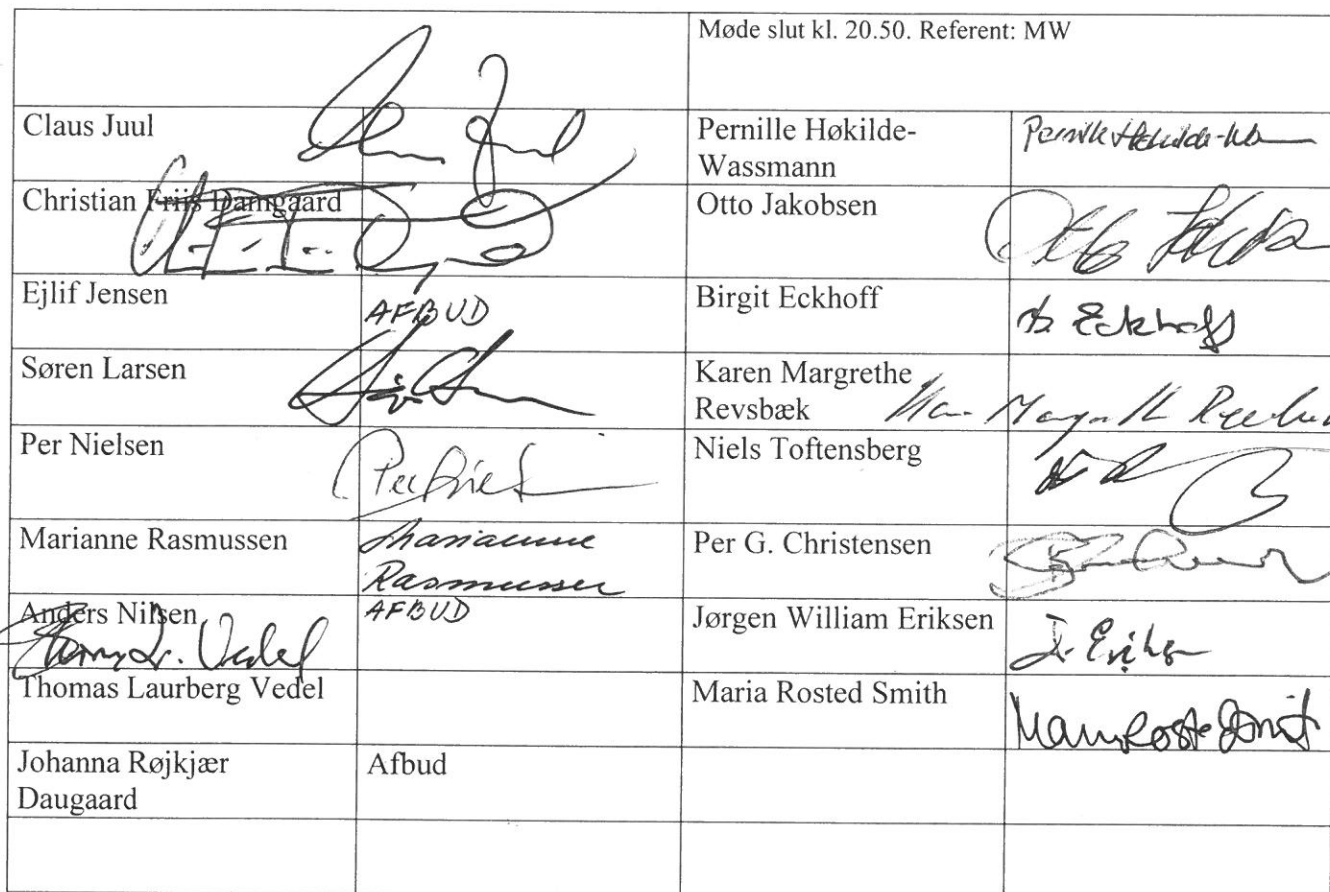 Møde slut kl. 20.50. Referent: MW
Claus Juul
Pernille Høkilde-
Wassmann
Pernille Høkilde-Wa
Christian Friis Damgaard
Otto Jakobsen
Otto Jakobsen
Ejlif Jensen
AFBUD
Birgit Eckhoff
B. Eckhoff
Søren Larsen
Karen Margrethe
Revsbæk
Per Nielsen
Niels Toftensberg
Marianne Rasmussen
Marianne
Rasmussen
Per G. Christensen
Anders Nilsen
AFBUD
Jørgen William Eriksen
J. Eriksen
Thomas L. Vedel
Thomas Laurberg Vedel
Maria Rosted Smith
Johanna Røjkjær
Daugaard
Afbud